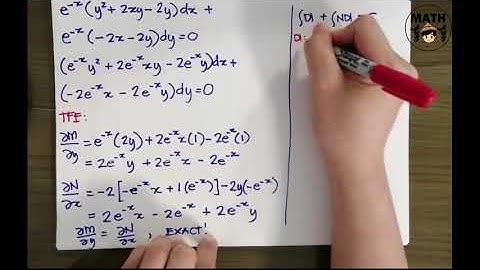 e⁻ˣ(y² + 2xy - 2y)dx +
e⁻ˣ(-2x - 2y)dy = 0
(e⁻ˣy² + 2e⁻ˣxy - 2e⁻ˣy)dx +
(-2e⁻ˣx - 2e⁻ˣy)dy = 0
TFE:
∂M/∂y = e⁻ˣ(2y) + 2e⁻ˣx(1) - 2e⁻ˣ(1)
= 2e⁻ˣy + 2e⁻ˣx - 2e⁻ˣ
∂N/∂x = -2[-e⁻ˣx + 1(e⁻ˣ)] - 2y(-e⁻ˣ)
= 2e⁻ˣx - 2e⁻ˣ + 2e⁻ˣy
∂M/∂y = ∂N/∂x, EXACT!
MATH